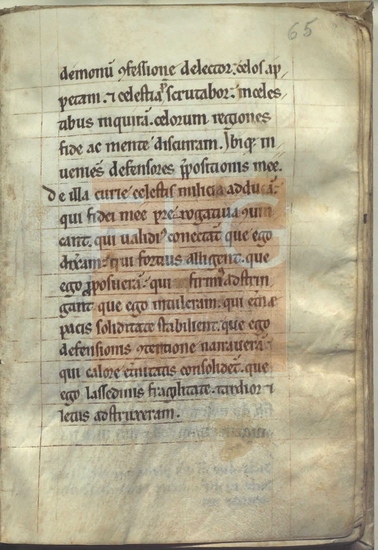 65
demonū ꝯfessione delector. celos ap
petam. ⁊ celestia scrutabor. in celes
tibus inquirā. celorum regiones
fide ac mente discurram. Ibiq; in
ueniēs defensores ꝓpositionis mee.
De illa curie celestis milicia adducā.
qui fidei mee prerogatiua ꝯuin
cant. qui validiꝰ conectāt que ego
dixeram. qui fortius alligent. que
ego ꝓposuerā. qui firmiꝰ adstrin
gant que ego intuleram. qui eterne
pacis soliditate stabilient. que ego
defensionis ꝯtentione narrauerā.
qui calore eternitatis consolidēt. que
ego lassedinis fragilitate. tardior ⁊
letius adstruxeram.